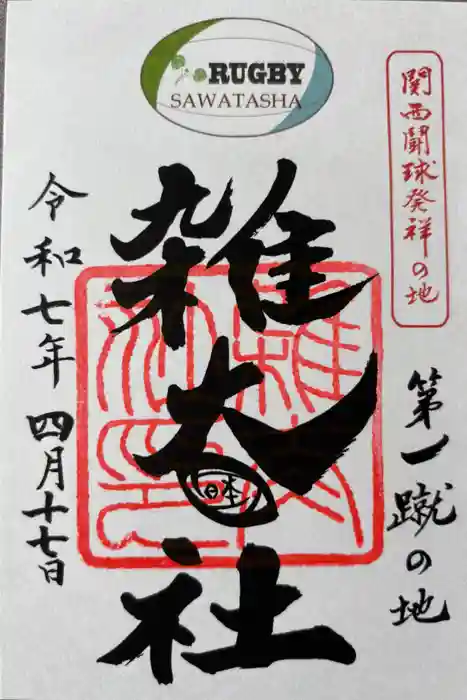 RUGBY
SAWATASHA
関西闘球発祥の地
第一蹴の地
雑太社
日本
令和七年四月十七日